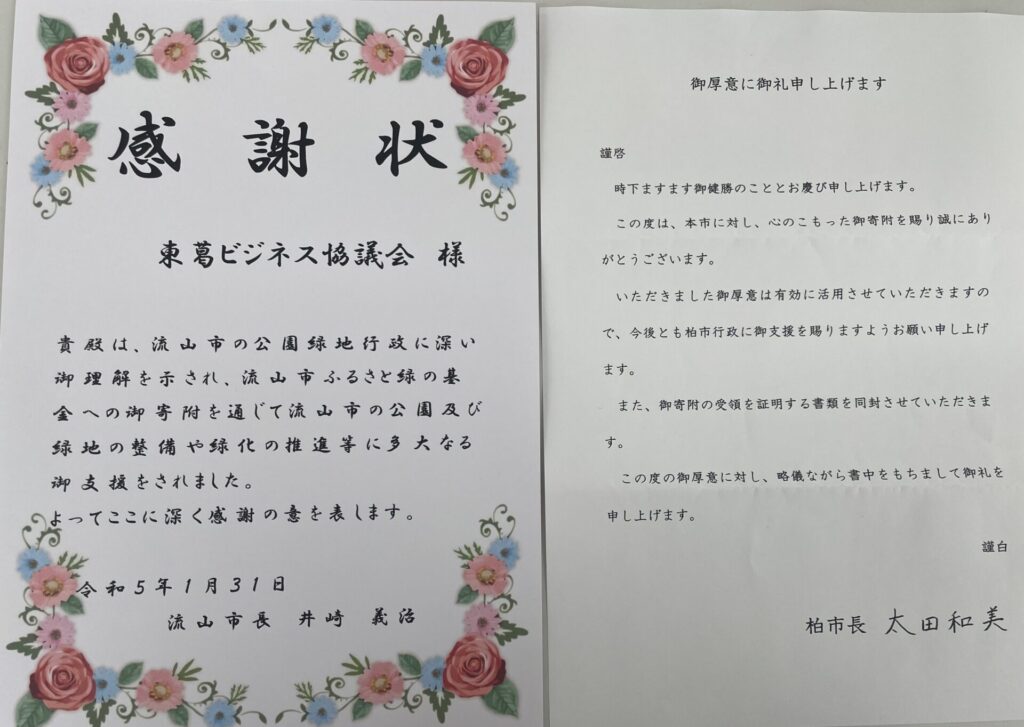 感謝状
東葛ビジネス協議会 様
貴殿は、流山市の公園緑地行政に深い
御理解を示され、流山市ふるさと緑の基
金への御寄附を通じて流山市の公園及び
緑地の整備や緑化の推進等に多大なる
御支援をされました。
よってここに深く感謝の意を表します。
令和5年1月31日
流山市長 井崎 義治
御厚意に御礼申し上げます
謹啓
時下ますます御健勝のこととお慶び申し上げます。
この度は、本市に対し、心のこもった御寄附を賜り誠にあり
がとうございます。
いただきました御厚意は有効に活用させていただきますの
で、今後とも柏市行政に御支援を賜りますようお願い申し上げ
ます。
また、御寄附の受領を証明する書類を同封させていただきま
す。
この度の御厚意に対し、略儀ながら書中をもちまして御礼を
申し上げます。
謹白
柏市長 太田和美